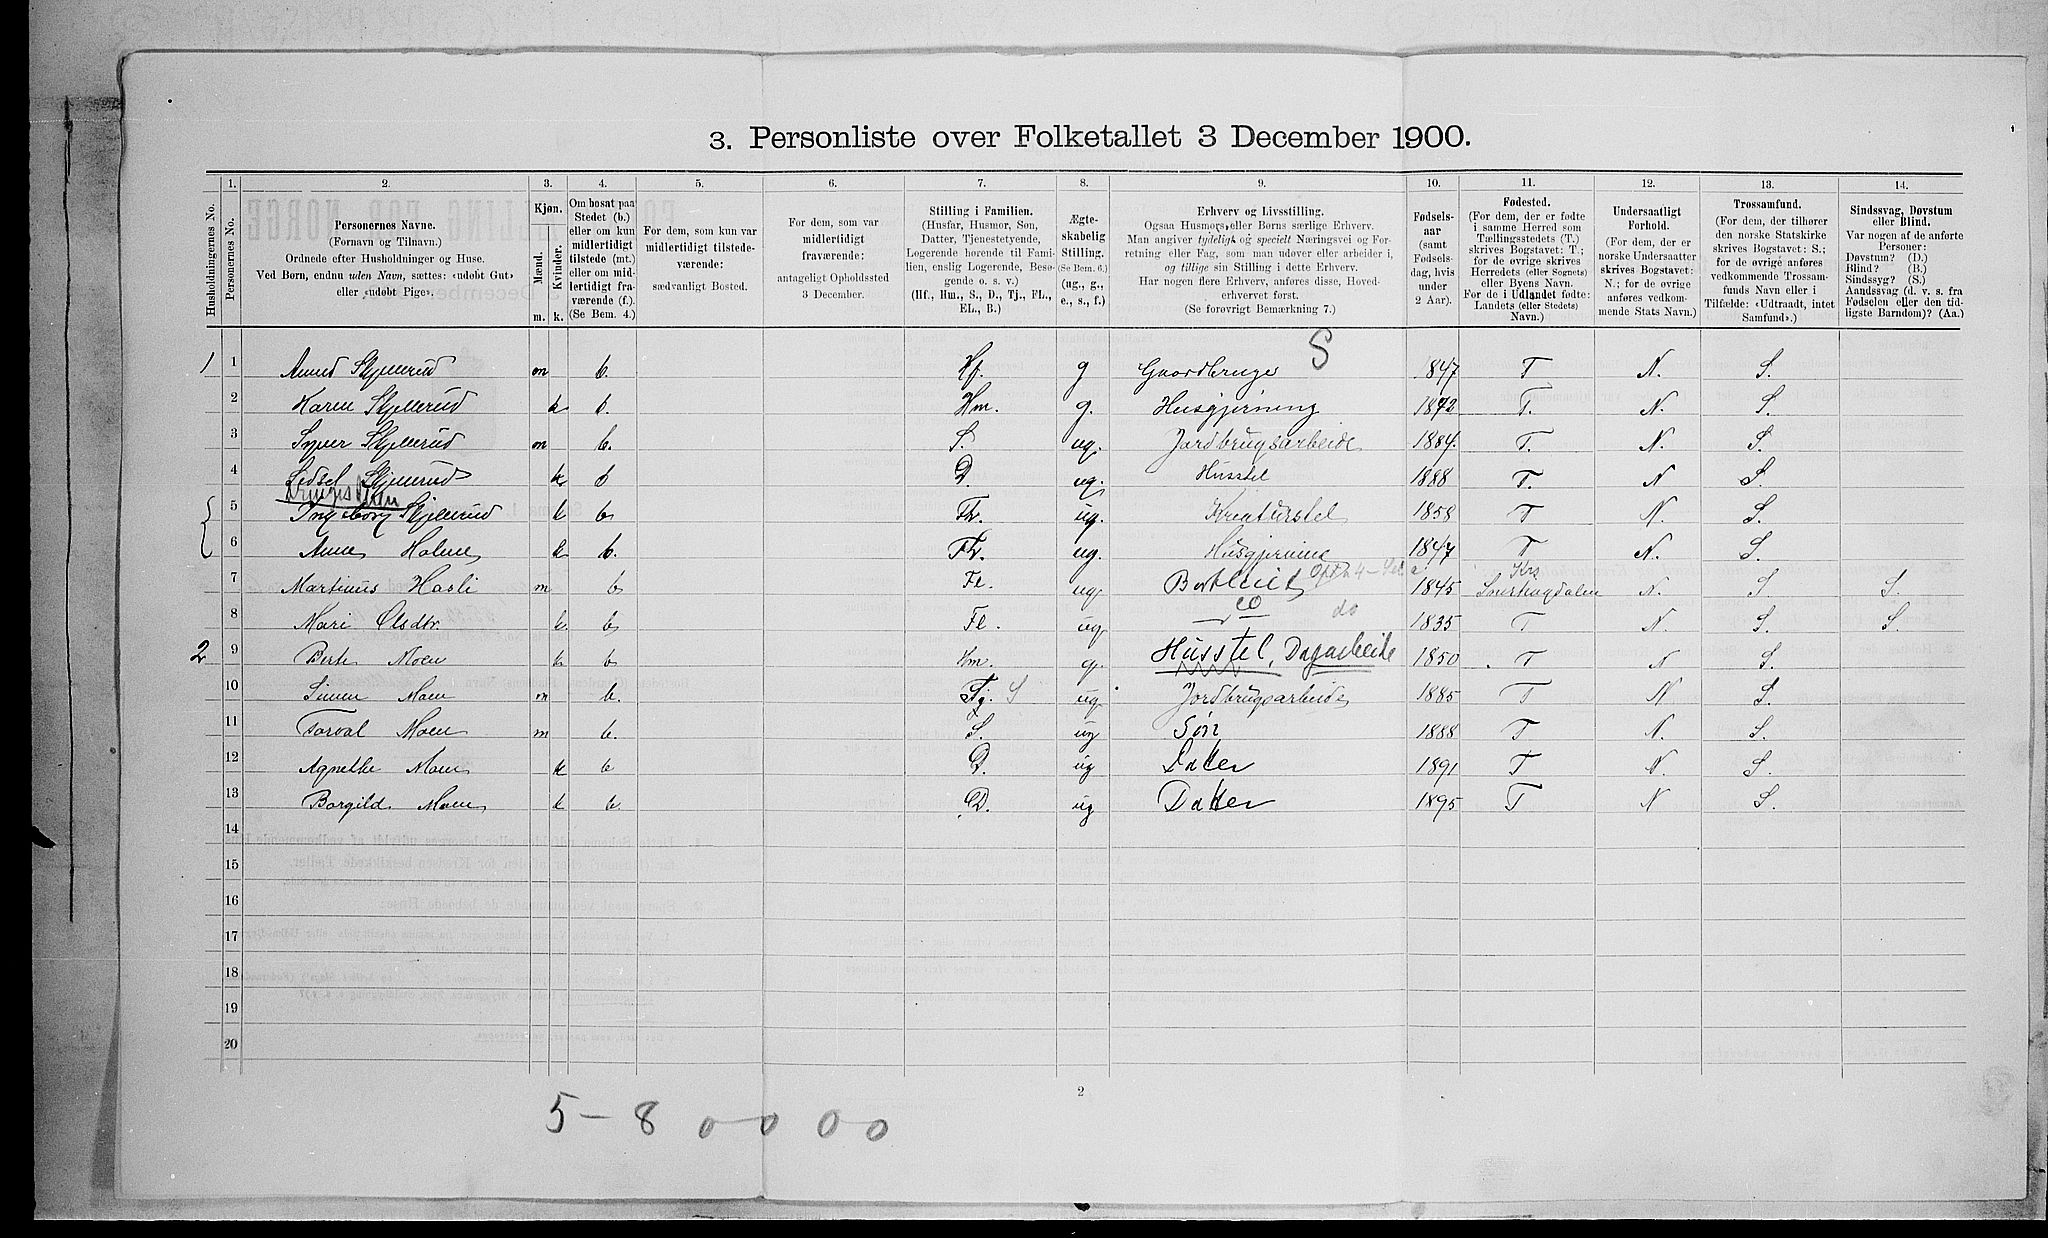 3. Personliste over Folketallet 3 December 1900.
Husholdningernes No.
1. Personernes No.
2. Personernes Navne. (Fornavn og Tilnavn.) Ordnede efter Husholdninger og Huse. Ved Børn, endnu uden Navn, sættes: «udøbt Gut» eller «udøbt Pige».
3. Kjøn. Mænd. Kvinder. m. k.
4. Om bosat paa Stedet (b.) eller om kun midlertidigt tilstede (mt.) eller om midlertidigt fraværende (f.). (Se Bem. 4.)
5. For dem, som kun var midlertidigt tilstedeværende: sædvanligt Bosted.
6. For dem, som var midlertidigt fraværende: antageligt Opholdssted 3 December.
7. Stilling i Familien. (Husfar, Husmor, Søn, Datter, Tjenestetyende, Logerende hørende til Familien, enslig Logerende, Besøgende o. s. v.) (Hf., Hm., S., D., Tj., FL., EL., B.)
8. Ægteskabelig Stilling. (Se Bem. 6.) (ug., g., e., s., f.)
9. Erhverv og Livsstilling. Ogsaa Husmors eller Børns særlige Erhverv. Man angiver tydeligt og specielt Næringsvei og Forretning eller Fag, som man udøver eller arbeider i, og tillige sin Stilling i dette Erhverv. Har nogen flere Erhverv, anføres disse, Hovederhvervet først. (Se forøvrigt Bemærkning 7.)
10. Fødselsaar (samt Fødselsdag, hvis under 2 Aar).
11. Fødested. (For dem, der er fødte i samme Herred som Tællingsstedets (T.) skrives Bogstavet: T.; for de øvrige skrives Herredets (eller Sognets) eller Byens Navn. For de i Udlandet fødte: Landets (eller Stedets) Navn.)
12. Undersaatligt Forhold. (For dem, der er norske Undersaatter skrives Bogstavet: N.; for de øvrige anføres vedkommende Stats Navn.)
13. Trossamfund. (For dem, der tilhører den norske Statskirke skrives Bogstavet: S.; for de øvrige anføres vedkommende Trossamfunds Navn eller i Tilfælde: «Udtraadt, intet Samfund».)
14. Sindssvag, Døvstum eller Blind. Var nogen af de anførte Personer: Døvstum? (D.) Blind? (B.) Sindssyg? (S.) Aandssvag (d. v. s. fra Fødselen eller den tidligste Barndom)? (Aa.)
S
1 1 Amund Skjellerud m b. Hf. g Gaardbruger 1847 T N. S.
2 Karen Skjellerud k b. Hm. g. Husgjerning 1842 T. N. S.
3 Syver Skjellerud m b. S. ug. Jordbrugsarbeide 1884. T. N. S.
4 Sidsel Skjellerud k b D. ug. Husstel 1888 T. N S.
5 Ingeborg Skjellerud k b Fl. ug. Kreaturstel 1858 T N. S.
6 Anne Holme k b. Fl. ug. Husgjerning 1847 T N. S.
7 Martinus Hasli m b Fl. ug. 1845 N. S S.
8 Mari Olsdtr. k. b Fl. ug do 1835 T N. S. S.
2 9 Berte Moen k b Hm. g. Husstel, Dagarbeide 1850 T N S.
10 Simen Moen m b. Tj. S ug Jordbrugsarbeide 1885 T N S.
11 Torval Moen m b. S. ug Søn 1888 T N. S.
12 Agnethe Moen k b D. ug Datter 1891 T N. S.
13 Borgild Moen k b. D. ug Datter 1895 T N S.
14
15
16
17
18
19
20
2
5 - 8 0 - 0 0 0